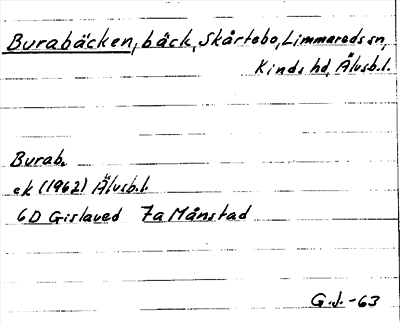 Burabäcken, bäck, Skårtebo, Limmareds sn,
Kinds hd, Älvsb.l.
Burab.
ek (1962) Älvsb.l.
6D Gislaved 7a Månstad
G.J.-63